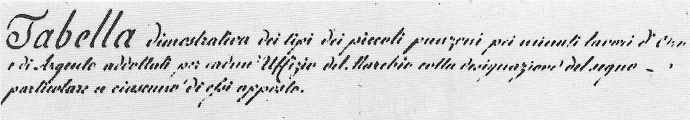 Tabella dimostrativa dei tipi dei piccoli punzoni pei minuti lavori d' Oro
e di Argento addottati per cadun' Uffizio del Marchio colla designazione del segno
particolare a ciascuno di essi apposto.